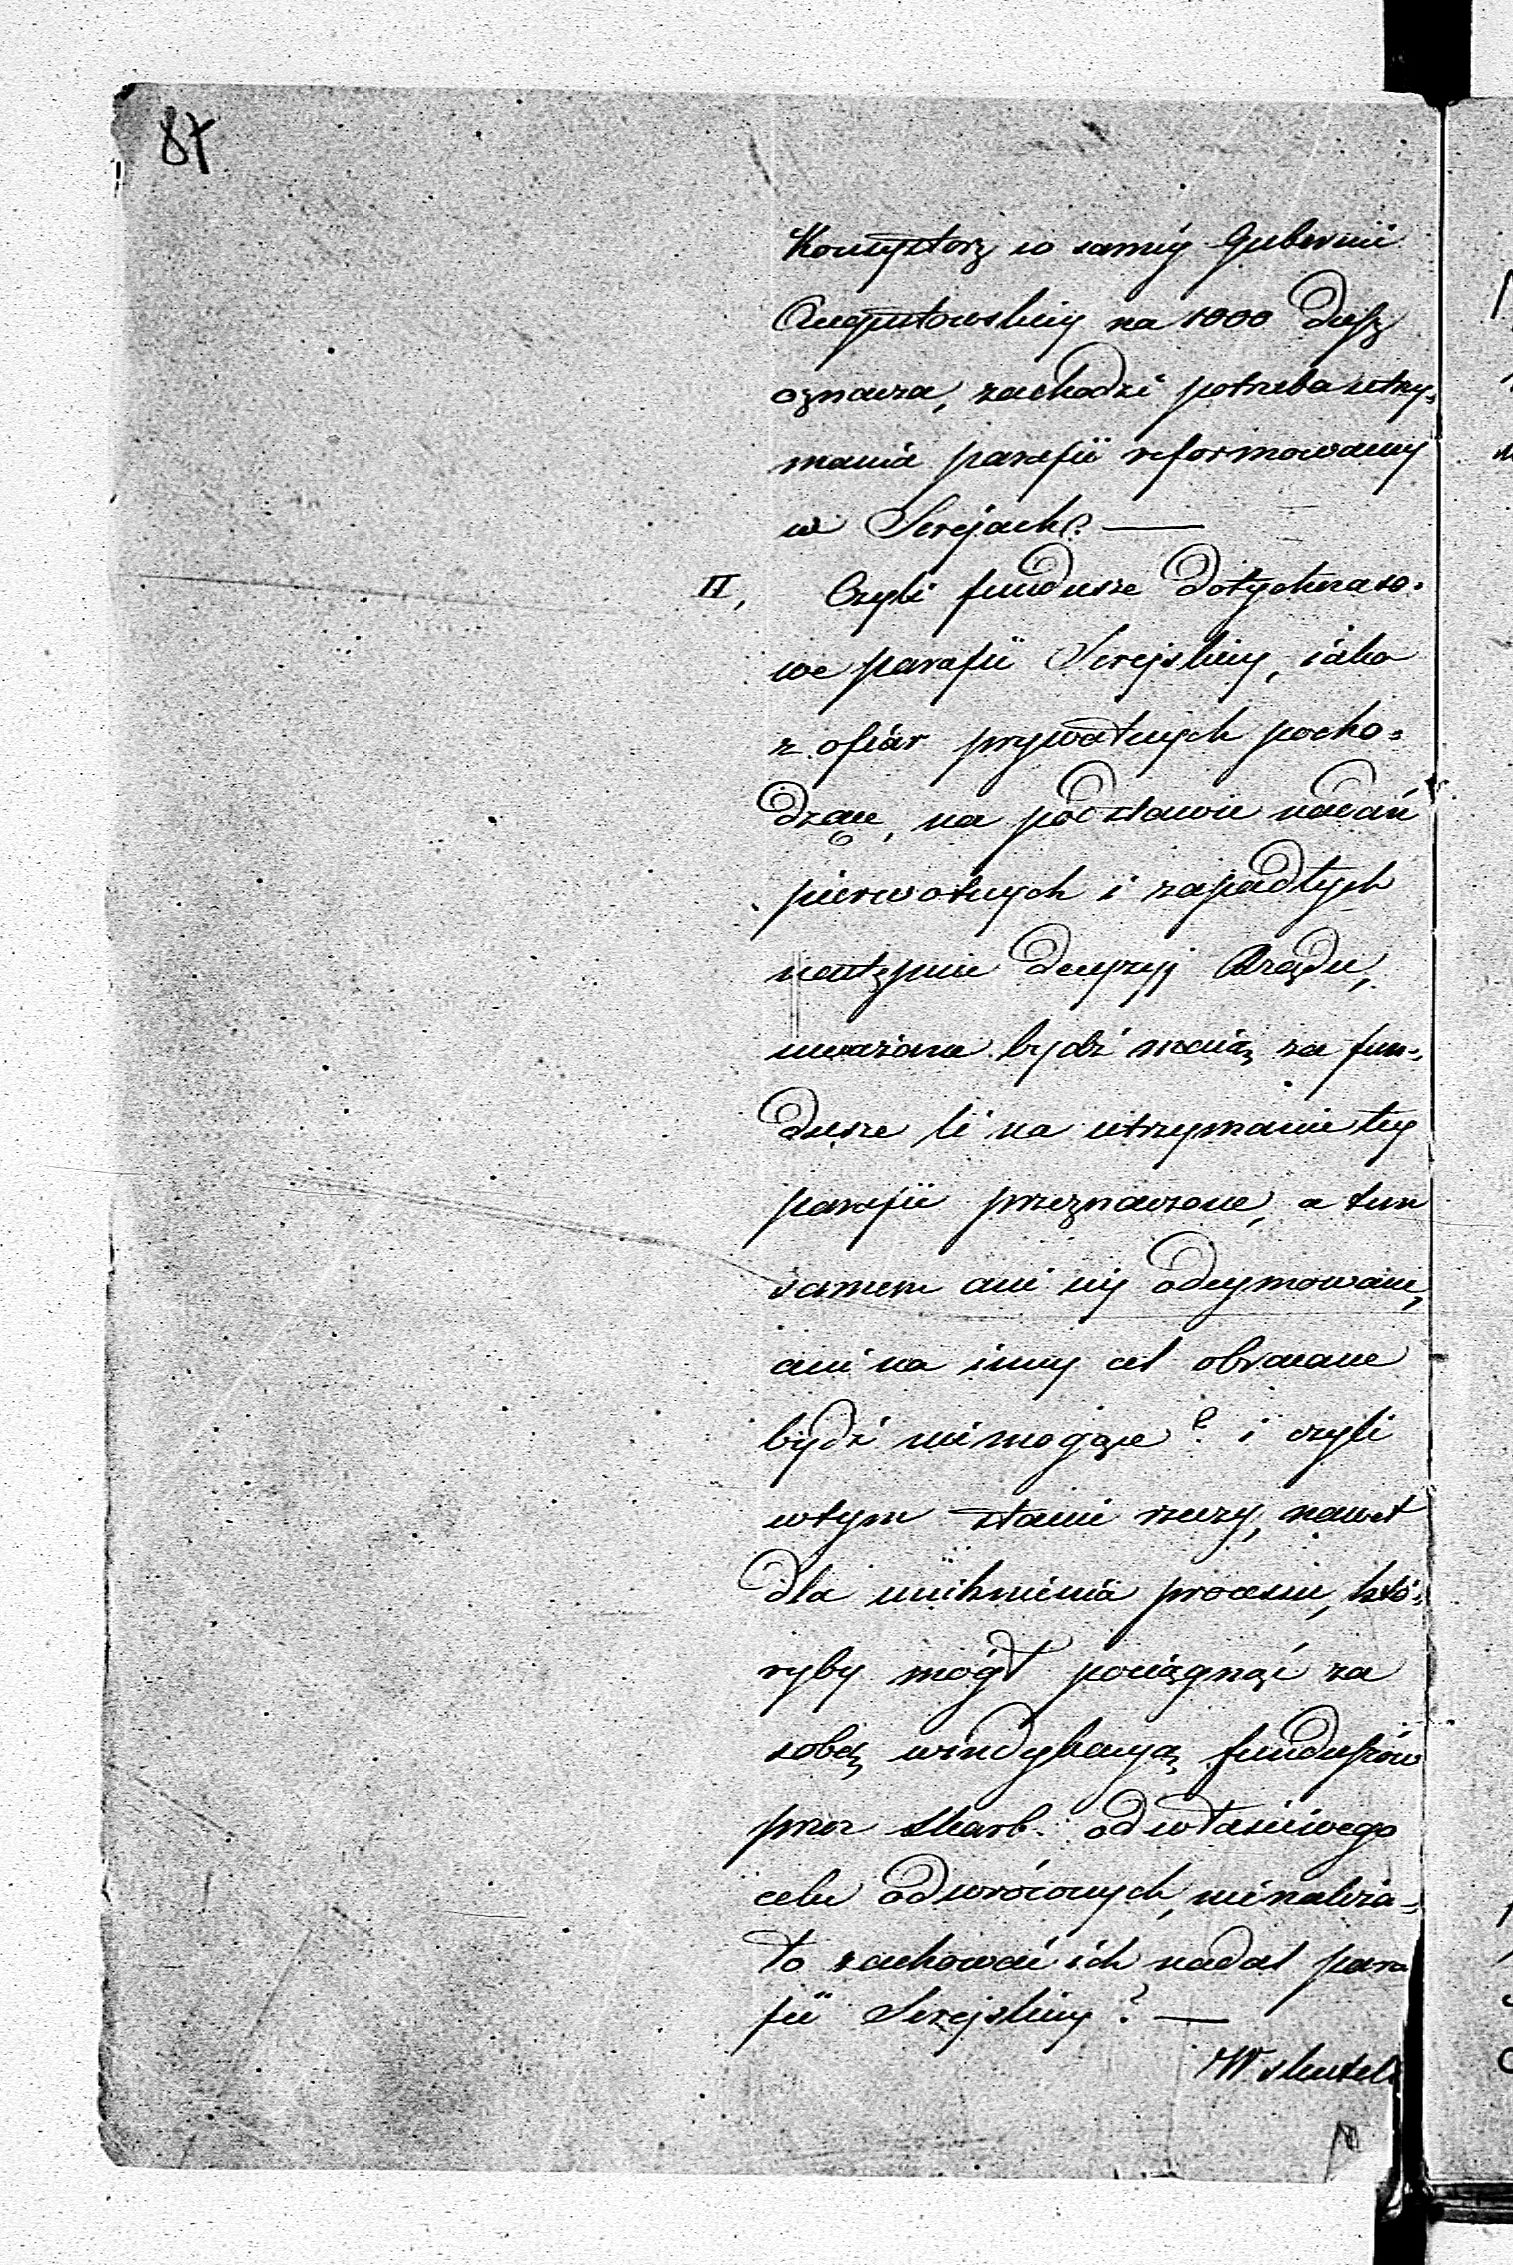 87
Konsystorz w saméy Gubernii
Augustowskiey na 1000 dusz
oznacza, zachodzi potrzeba utrzy=
mania parafii reformowaney
w Serejach? —
II, Czyli fundusze dotychczaso=
we parafii Serejskiey, iako
z ofiar prywatnych pocho=
dzące, na podstawie nadań
pierwotnych i zapadłych
następnie decyzyj Rządu,
uważane bydź maią za fun=
dusze li na utrzymanie tey
parafii przeznaczone, a tem
samem ani iey odeymowane,
ani na inny cel obracane
bydź niemogące? i czyli
wtym stanie rzeczy, nawet
dla uniknienia procesu, któ=
ryby mógł pociągnąć za
sobą windykacyą funduszów
przez Skarb od właściwego
celu odwróconych, nienależa=
ło zachować ich nadal para
fii Serejskiey? —
W skutek